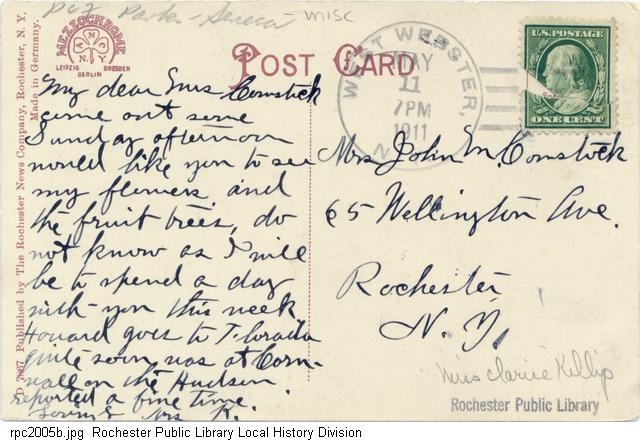 P67 Park - Seneca misc
MEZZOCHROME
A N C
N.Y.
LEIPZIG DRESDEN
BERLIN
POST CARD
WEST WEBSTER, N.Y.
MAY
11
7PM
1911
U.S. POSTAGE
ONE CENT
D 7367 Published by The Rochester News Company, Rochester, N. Y.
Made in Germany.
My dear Mrs Comstock
come out some
Sunday afternoon
would like you to see
my flowers and
the fruit trees, do
not know as I will
be to spend a day
with you this week
Howard goes to
quite soon, was at Corn-
wall on the Hudson
reported a fine time.
Mrs K.
Mrs John M. Comstock
65 Wellington Ave.
Rochester
N. Y.
Miss Clarice Killip
Rochester Public Library
rpc2005b.jpg Rochester Public Library Local History Division